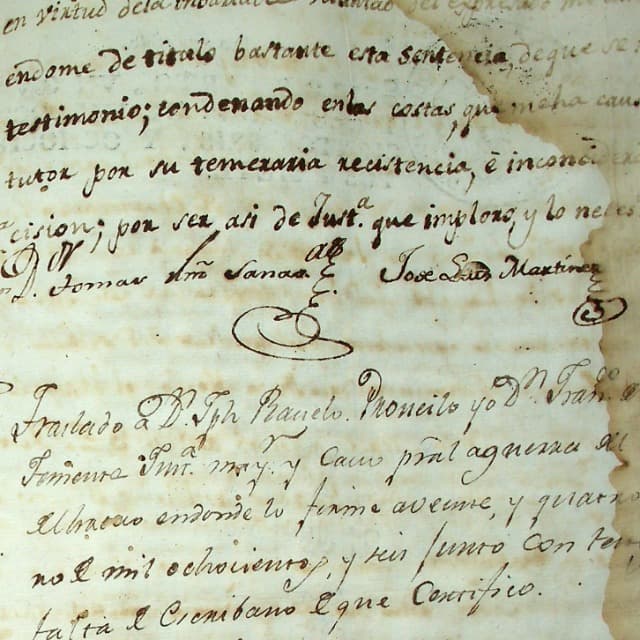 en virtud dela
endome de titulo bastante esta sentencia, deque se
testimonio; condenando enlas costas, que meha cau
tutor por su temeraria recistencia, è inconcider
cision; por ser asi de Just.ª que imploro, y lo neces
D. Tomas Sanas Jose Luis Martinez
Traslado a D.n Jph Ravelo. Proveilo yo D.n Fran.co
Tomente may.r y Cavo pral aguerra del
endonde lo firme aveinte, y quatro
ro de mil ochocientos, y seis Junto con tes
falta de Escribano de que Certifico.